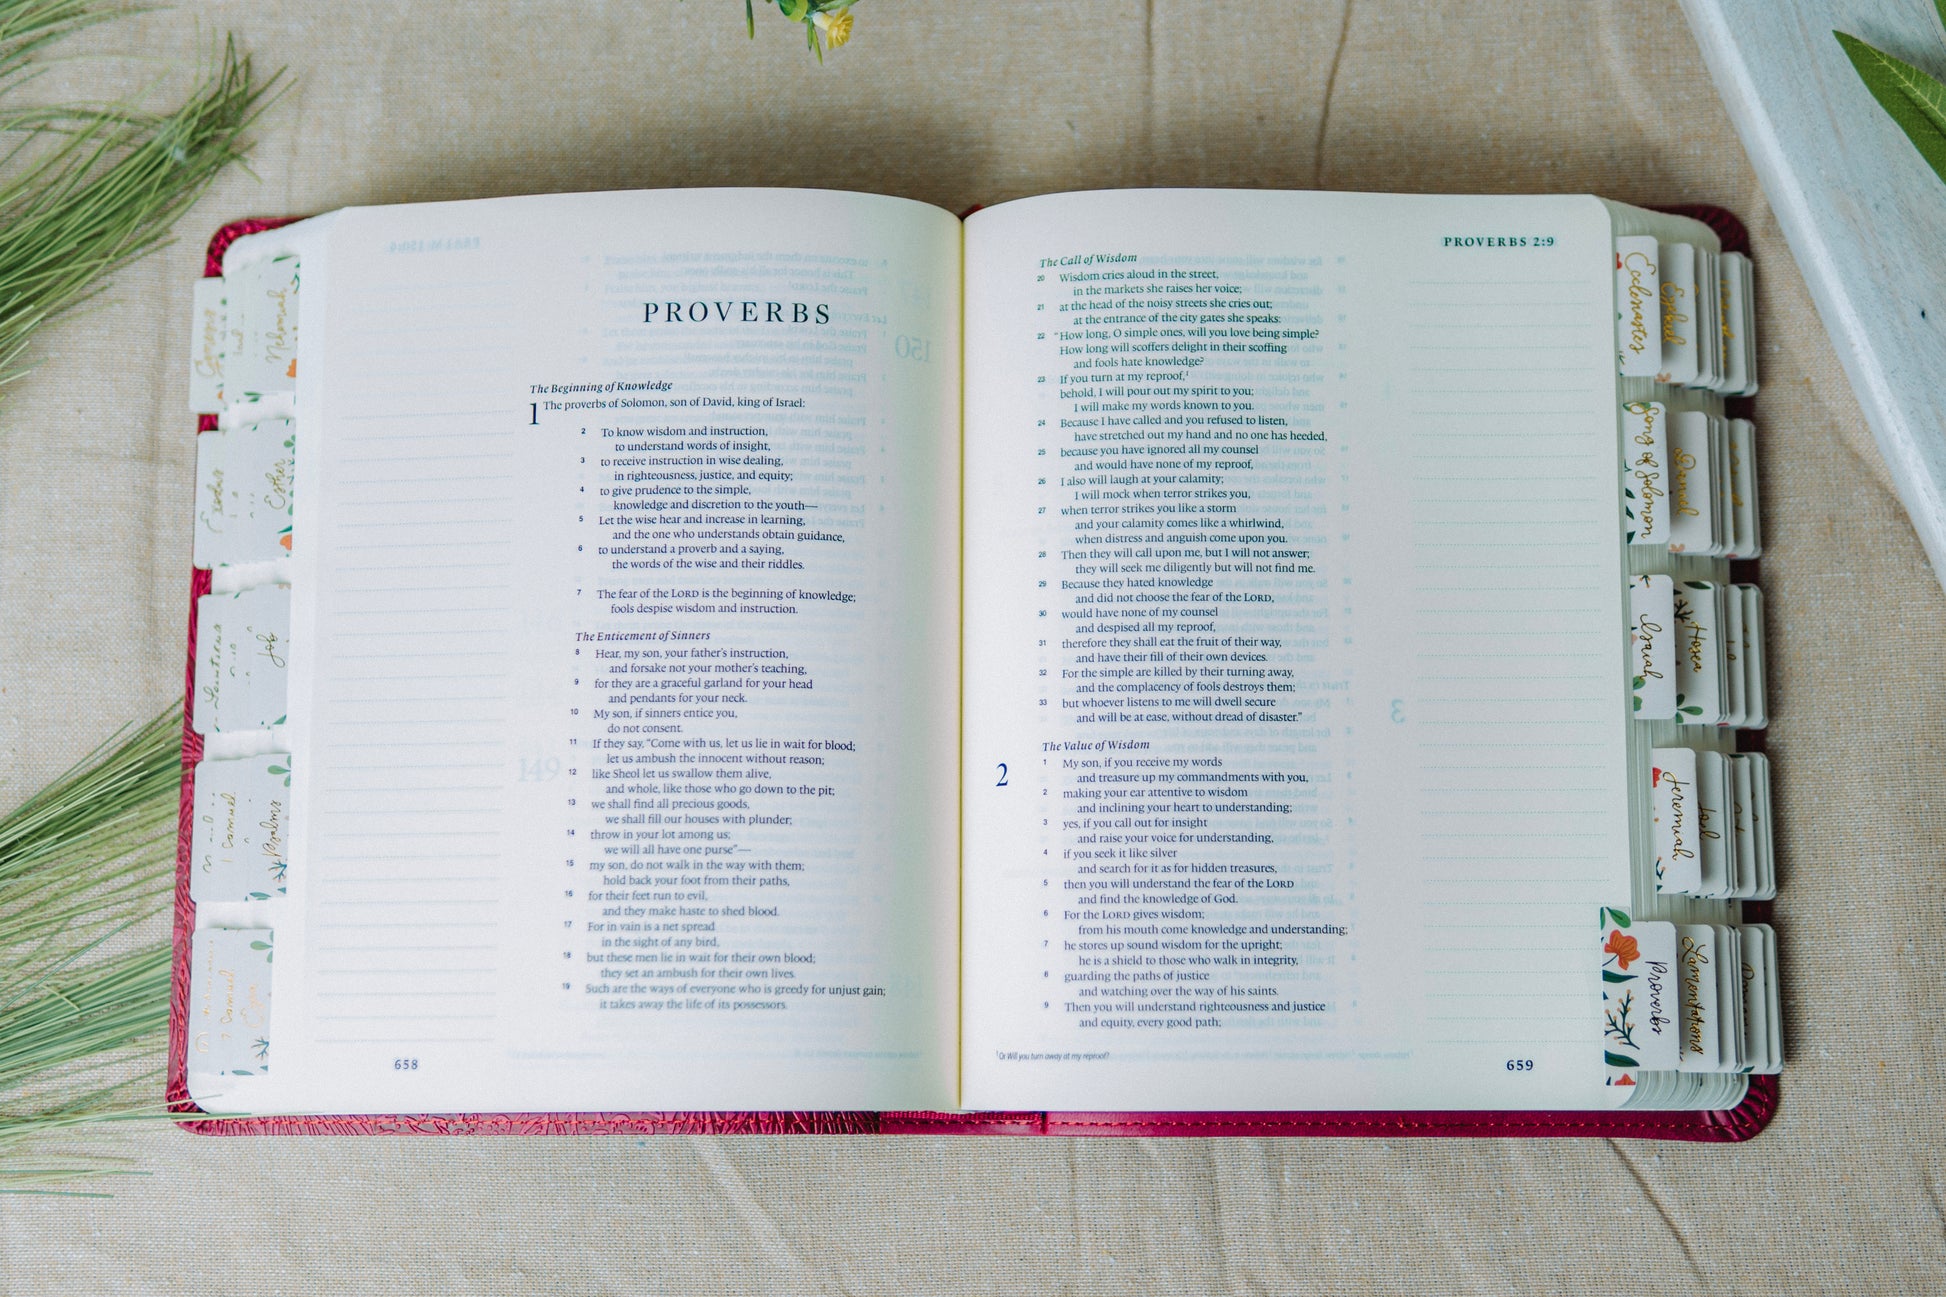 PROVERBS
The Beginning of Knowledge
1 The proverbs of Solomon, son of David, king of Israel:
2 To know wisdom and instruction,
to understand words of insight,
3 to receive instruction in wise dealing,
in righteousness, justice, and equity;
4 to give prudence to the simple,
knowledge and discretion to the youth—
5 Let the wise hear and increase in learning,
and the one who understands obtain guidance,
6 to understand a proverb and a saying,
the words of the wise and their riddles.
7 The fear of the LORD is the beginning of knowledge;
fools despise wisdom and instruction.
The Enticement of Sinners
8 Hear, my son, your father's instruction,
and forsake not your mother's teaching,
9 for they are a graceful garland for your head
and pendants for your neck.
10 My son, if sinners entice you,
do not consent.
11 If they say, "Come with us, let us lie in wait for blood;
let us ambush the innocent without reason;
12 like Sheol let us swallow them alive,
and whole, like those who go down to the pit;
13 we shall find all precious goods,
we shall fill our houses with plunder;
14 throw in your lot among us;
we will all have one purse"—
15 my son, do not walk in the way with them;
hold back your foot from their paths,
16 for their feet run to evil,
and they make haste to shed blood.
17 For in vain is a net spread
in the sight of any bird,
18 but these men lie in wait for their own blood;
they set an ambush for their own lives.
19 Such are the ways of everyone who is greedy for unjust gain;
it takes away the life of its possessors.
658
PROVERBS 2:9
The Call of Wisdom
20 Wisdom cries aloud in the street,
in the markets she raises her voice;
21 at the head of the noisy streets she cries out;
at the entrance of the city gates she speaks:
22 "How long, O simple ones, will you love being simple?
How long will scoffers delight in their scoffing
and fools hate knowledge?
23 If you turn at my reproof,1
behold, I will pour out my spirit to you;
I will make my words known to you.
24 Because I have called and you refused to listen,
have stretched out my hand and no one has heeded,
25 because you have ignored all my counsel
and would have none of my reproof,
26 I also will laugh at your calamity;
I will mock when terror strikes you,
27 when terror strikes you like a storm
and your calamity comes like a whirlwind,
when distress and anguish come upon you.
28 Then they will call upon me, but I will not answer;
they will seek me diligently but will not find me.
29 Because they hated knowledge
and did not choose the fear of the LORD,
30 would have none of my counsel
and despised all my reproof,
31 therefore they shall eat the fruit of their way,
and have their fill of their own devices.
32 For the simple are killed by their turning away,
and the complacency of fools destroys them;
33 but whoever listens to me will dwell secure
and will be at ease, without dread of disaster."
The Value of Wisdom
2
1 My son, if you receive my words
and treasure up my commandments with you,
2 making your ear attentive to wisdom
and inclining your heart to understanding;
3 yes, if you call out for insight
and raise your voice for understanding,
4 if you seek it like silver
and search for it as for hidden treasures,
5 then you will understand the fear of the LORD
and find the knowledge of God.
6 For the LORD gives wisdom;
from his mouth come knowledge and understanding;
7 he stores up sound wisdom for the upright;
he is a shield to those who walk in integrity,
8 guarding the paths of justice
and watching over the way of his saints.
9 Then you will understand righteousness and justice
and equity, every good path;
1 Or Will you turn away at my reproof?
659
Nehemiah
Exodus
Esther
Job
1 Samuel
Ecclesiastes
Ezekiel
Song of Solomon
Daniel
Isaiah
Hosea
Jeremiah
Joel
Proverbs
Lamentations